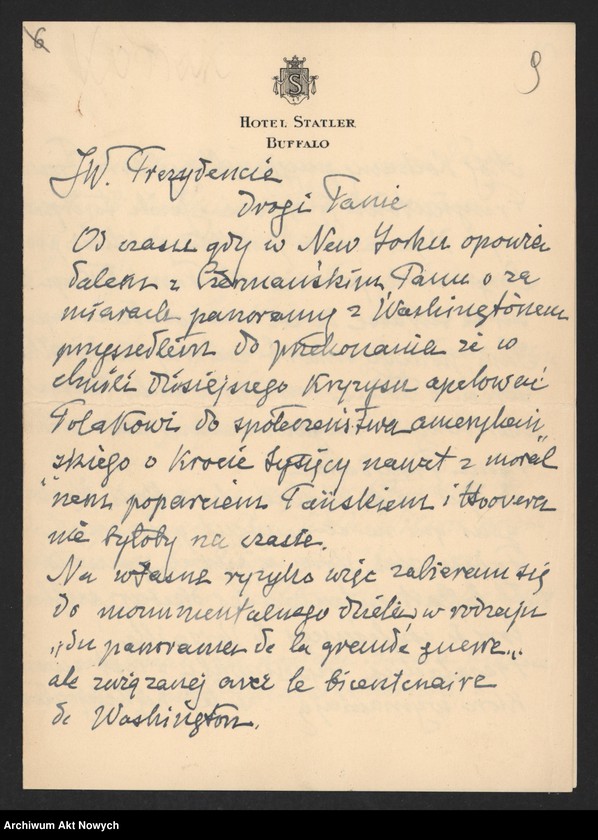 6
9
S
HOTEL STATLER
BUFFALO
JW. Prezydencie
Drogi Panie
Od czasu gdy w New Yorku opowia
dałem z Czermańskim, Panu o za
miarach panoramy z Washingtonem
przyszedłem do przekonania że w
chwili dzisiejszego kryzysu apelować
Polakowi do społeczeństwa amerykań
skiego o krocie tysięcy nawet z "moral
"nem poparciem Pańskiem i Hoovera
nie byłoby na czasie.
Na własne ryzyko więc zabieram się
do monumentalnego dzieła, w rodzaju
„du panorama de la grande guerre„.
ale związanej avec le bicentenaire
de Washington.
Archiwum Akt Nowych